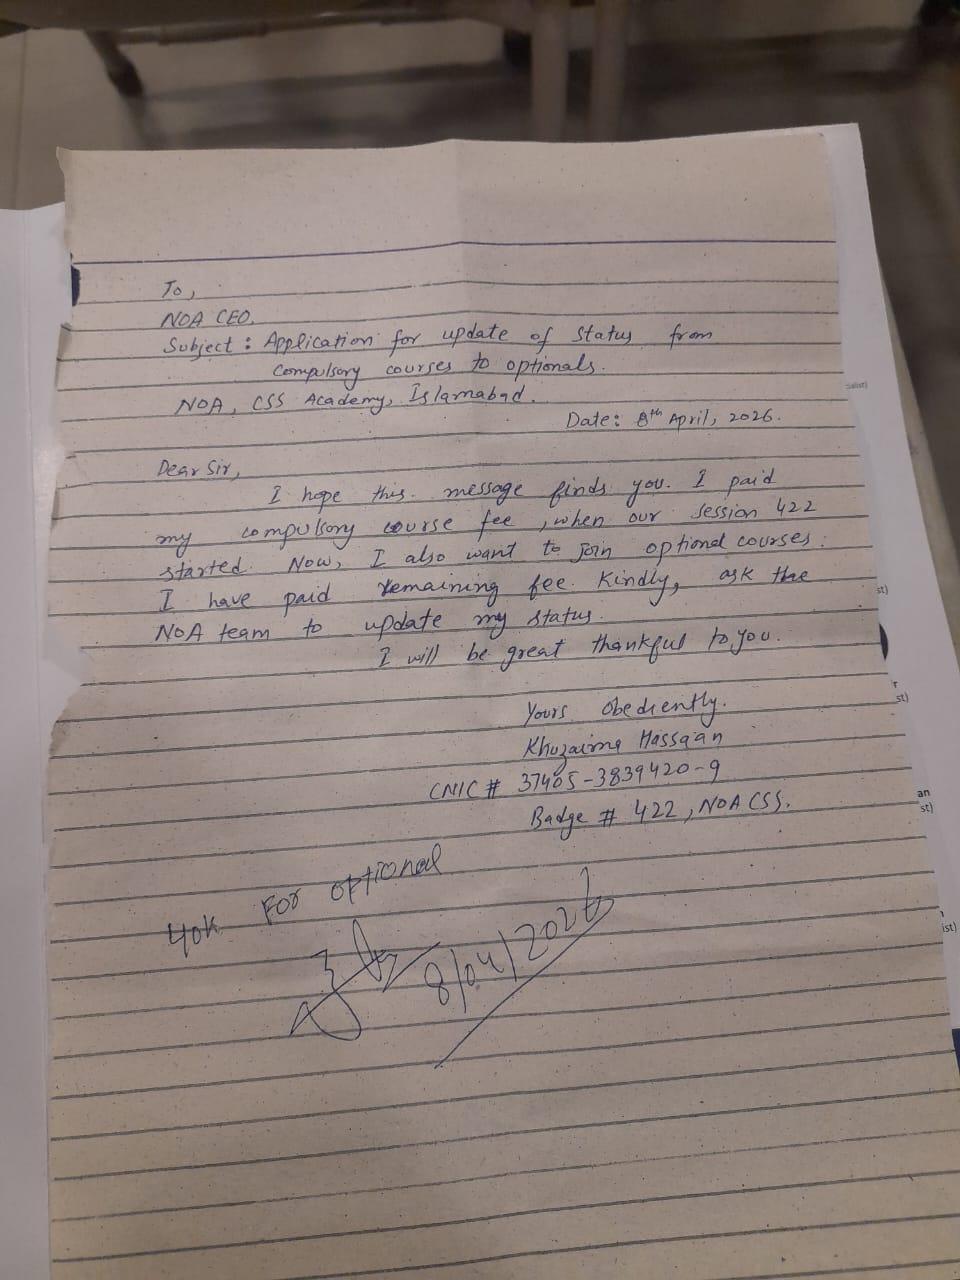 To,
NOA CEO.
Subject : Application for update of status from
compulsory courses to optionals.
NOA, CSS Academy, Islamabad.
Date: 8th April, 2026.
Dear Sir,
I hope this message finds you. I paid
my compulsory course fee, when our session 422
started. Now, I also want to join optional courses.
I have paid remaining fee. Kindly, ask the
NOA team to update my status.
I will be great thankful to you.
Yours obediently.
Khuzaima Hassaan
CNIC # 37405-3839420-9
Badge # 422, NOA CSS.
40k For optional
8/04/2026